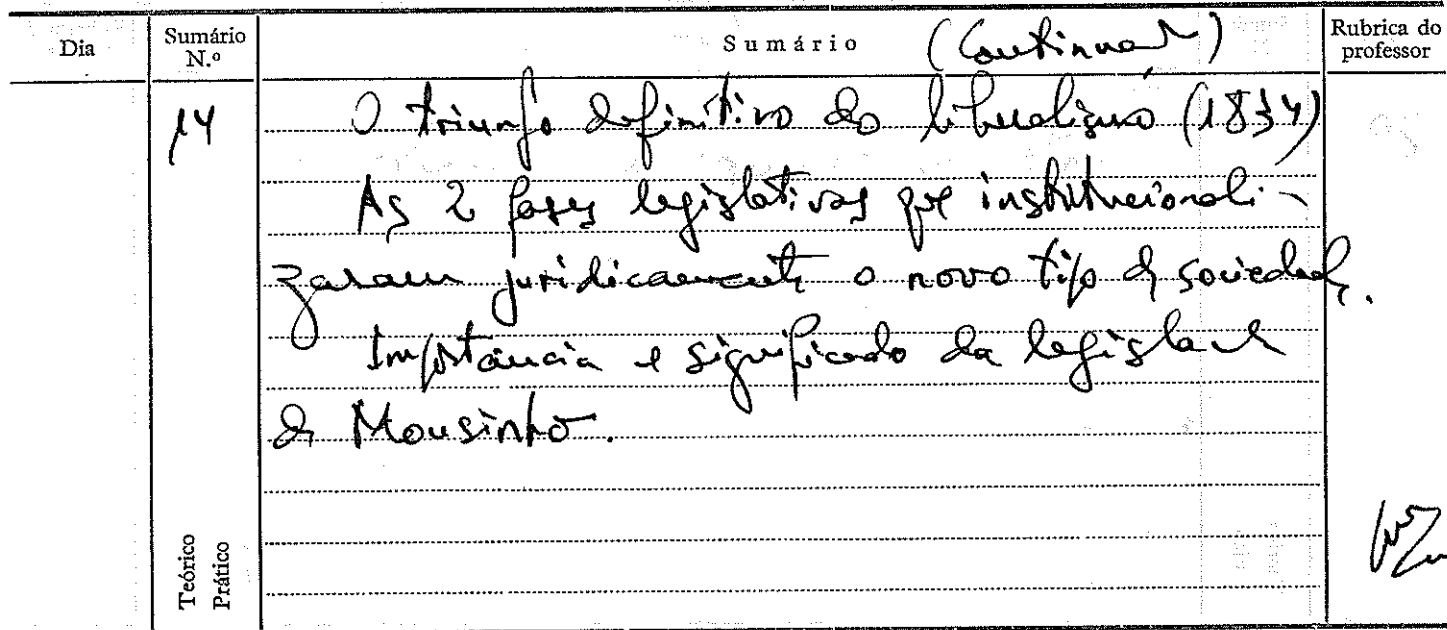 Dia
Sumário N.º
Sumário (Continuação)
Rubrica do professor
14
O triunfo definitivo do liberalismo (1834)
As 2 fases legislativas que institucionali-
zaram juridicamente o novo tipo de sociedade.
Importância e significado da legislação
de Mousinho.
Teórico
Prático